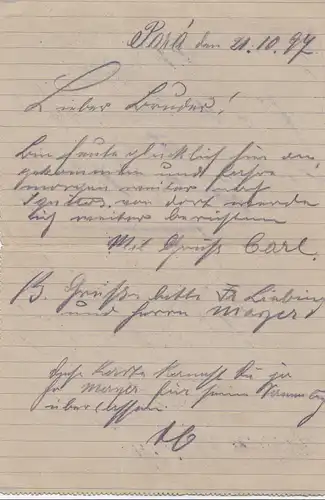 Pará den 21.10.97
Lieber Bruder!
Bin heute glücklich hier an-
gekommen und fahre
morgen weiter nach
Iquitos, von dort werde
ich weiter berichten
Mit Gruss Carl.
Grüsse bitte Frl Liebing
und Herrn Mayer
Karte kannst Du ja
Mayer für seine
überlassen.